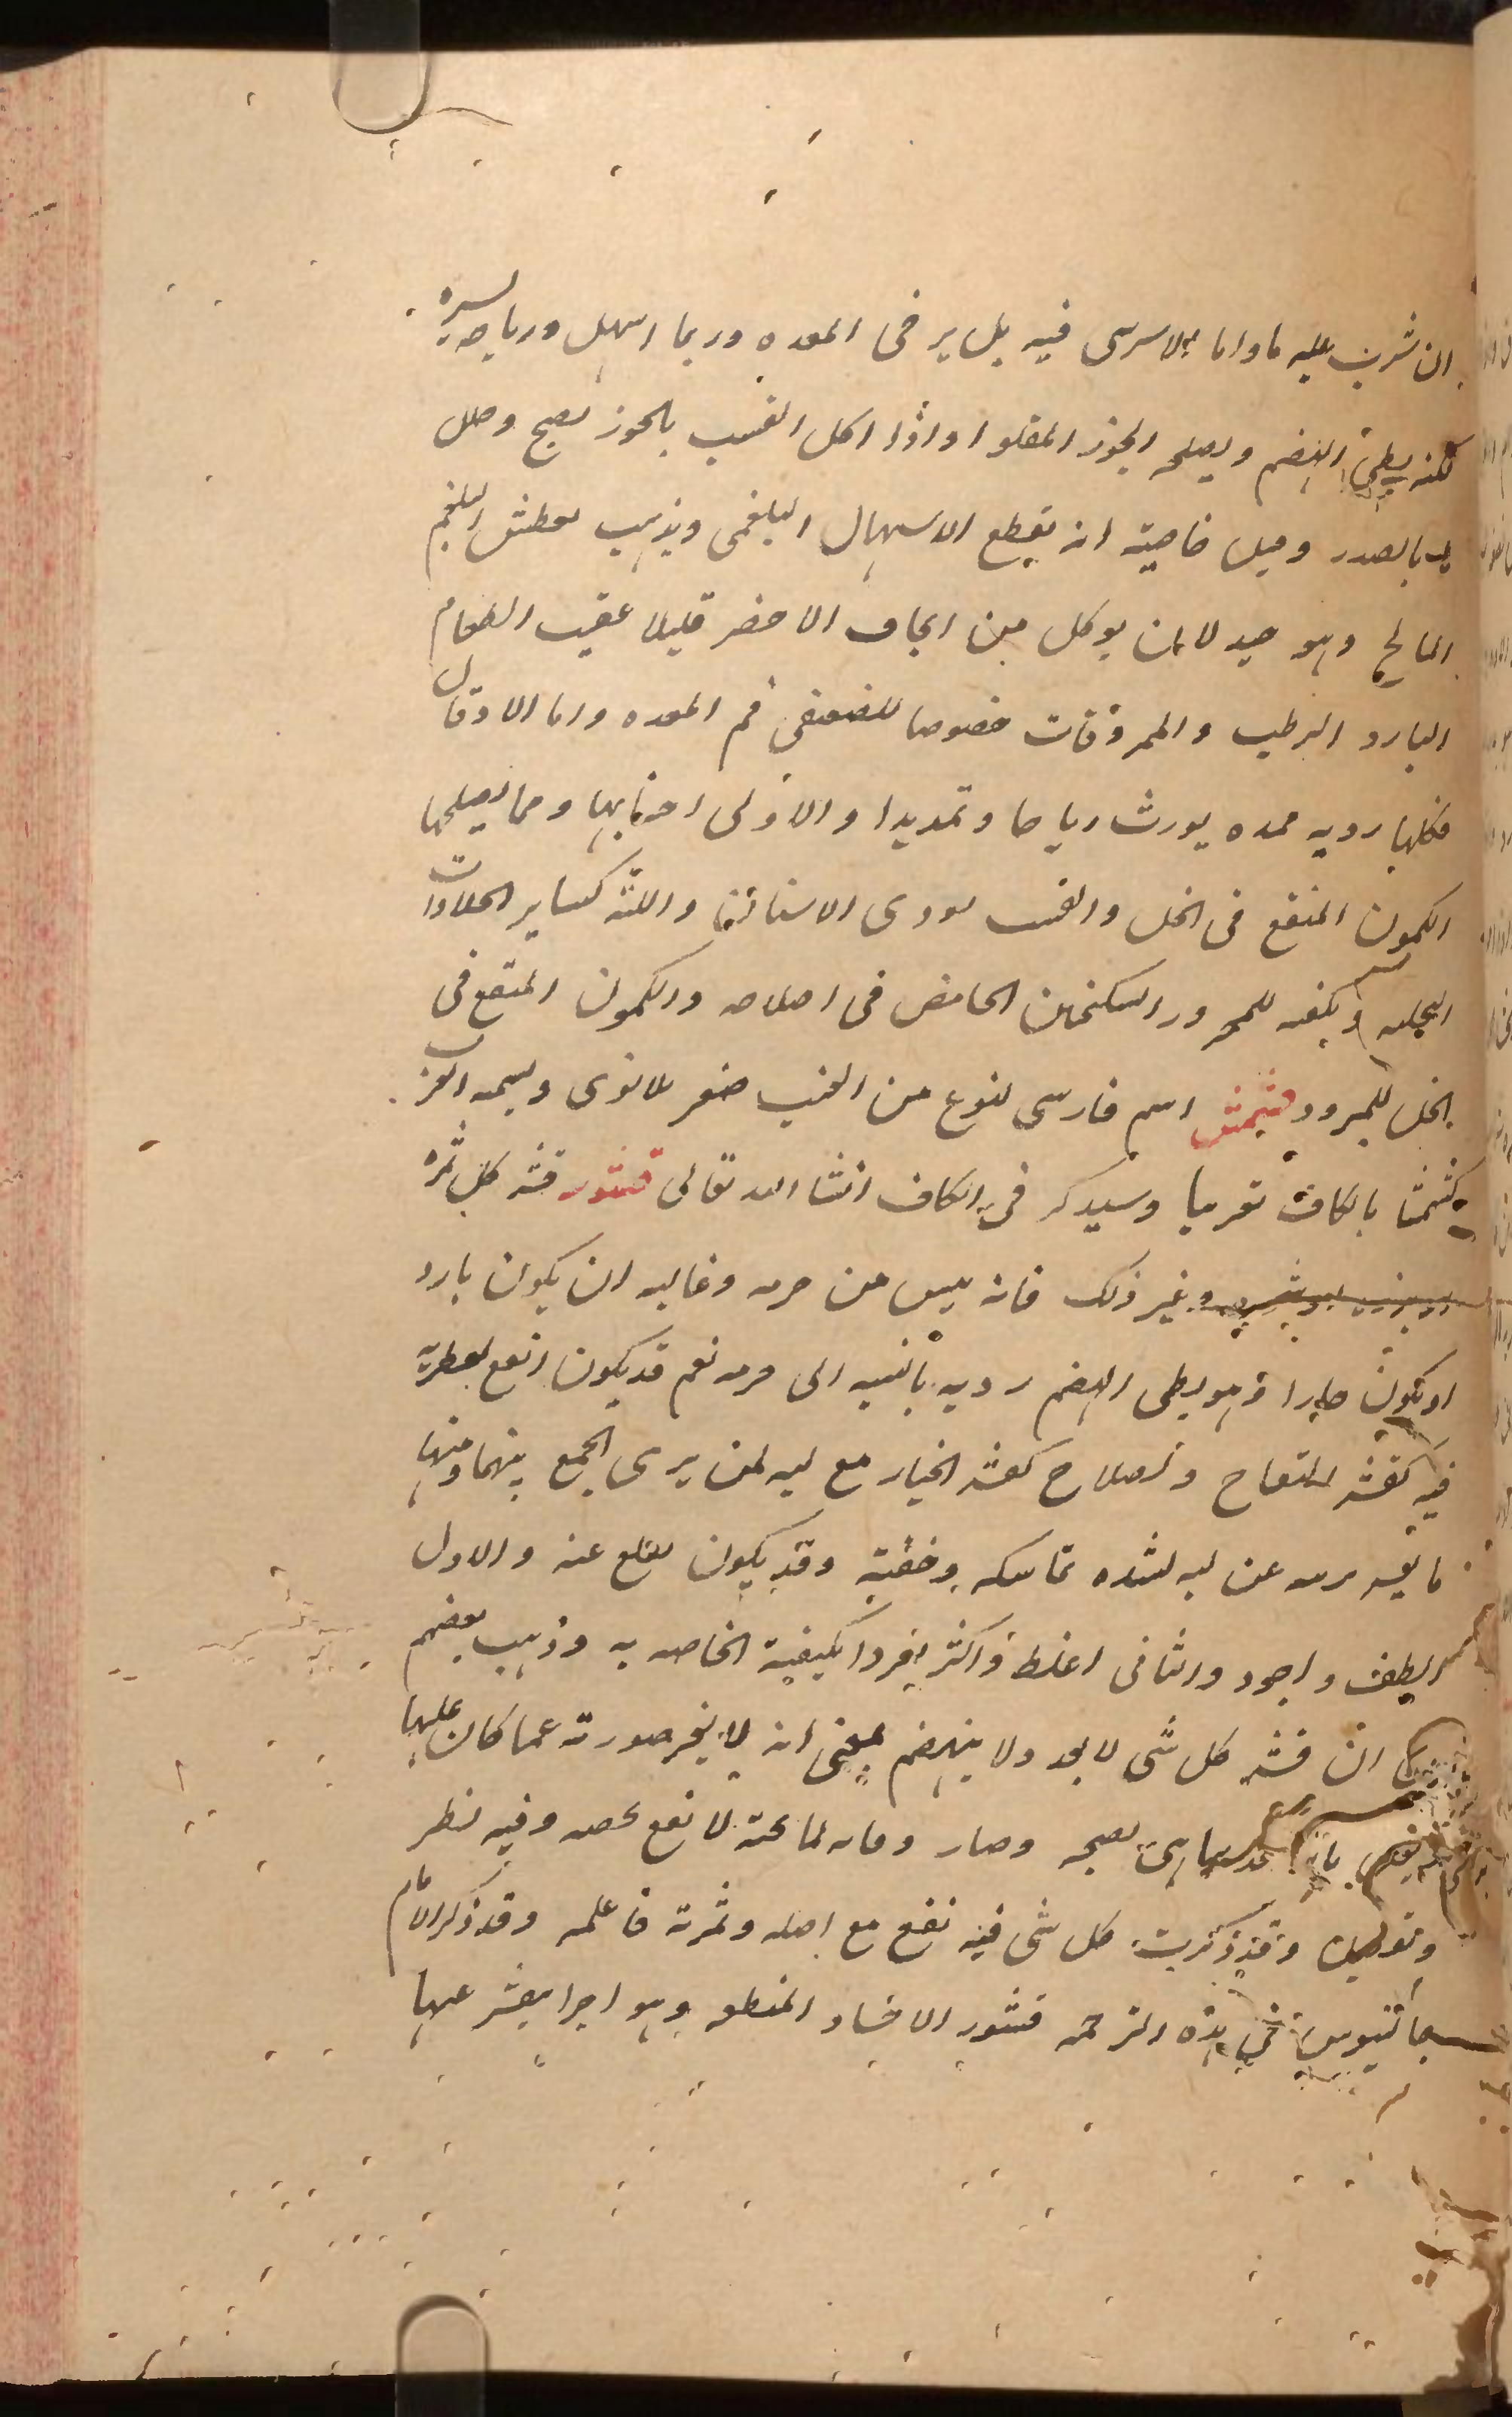 ان شرب عليه ماء واما الاسرسى فيه بل يرخى المعده وربما اسهل ورياحه يسيره
لكنه بطئ الهضم ويصلحه الجوز المقلوا واذا اكل القسب بالجوز نضج وحلل
ما بالصدر وقيل خاصيته انه يقطع الاسهال البلغمى ويذهب بعطش البلغم
المالح وهو جيد لان يوكل من الجاف الاخضر قليلا عقيب الطعام
البارد الرطب والممروقات خصوصا لضعفى فم المعده واما الادقال
فكلها رديه ممده يورث رياحا وتمديدا والاولى اجتنابها ومما يصلحها
الكمون المنقع فى الخل والقسب يودى الاسنان واللثه كساير الحلاوات
ويكفيه للمحرور السكنجبين الحامض فى اصلاحه والكمون المنقع فى
الخل للمبرود قشمش اسم فارسى لنوع من العنب صغير لا نوى ويسميه العرب
كشمشا بالكاف تعريبا وسيذكر فى الكاف انشا الله تعالى قشور قشر كل ثمره
وغير ذلك فانه يبس من جرمه وغالبه ان يكون بارد
او يكون حارا وهو بطى الهضم رديه بالنسبه الى جرمه نعم قد يكون انفع لعطريه
فيه كقشر التفاح ولاصلاح كقشر الخيار مع لبه لمن يرى الجمع بينهما ومنها
ما يقشر جرمه عن لبه لشده تماسكه وخفته وقد يكون يقلع عنه والاول
الطف واجود والثانى اغلظ واكثر افرادا بكيفية الخاصه به وذهب بعضهم
ان قشر كل شى لا يغد ولا ينهضم بمعنى انه لا يغير صورته عما كان عليها
نضجه وصار وقايه لما تحته لا نفع يخصه وفيه نظر
وتوليد وقد ذكرت كل شى فيه نفع مع اصله وثمرته فاعلمه وقد ذكر الامام
جالنيوس فى هذه الترجمه قشور الاجساد المنطبعه وهو اجزا يقشر عنها